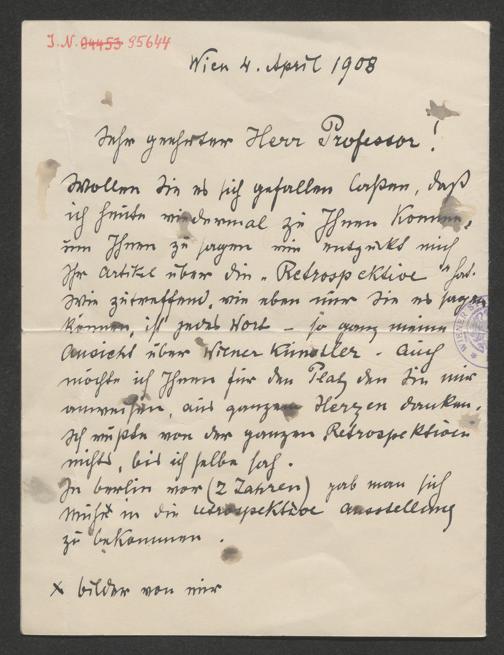 J.N. 94453 95644
Wien 4. April 1908
Sehr geehrter Herr Professor!
Wollen Sie es sich gefallen laßen, daß
ich heute wiedermal zu Ihnen komme,
um Ihnen zu sagen wie entzückt mich
Ihr Artikel über die „Retrospektive" hat.
Wie zutreffend, wie eben nur Sie es sagen
können, ist jedes Wort – so ganz meine
Ansicht über Wiener Künstler. Auch
möchte ich Ihnen für den Platz den Sie mir
anweisen, aus ganzem Herzen danken.
Ich wußte von der ganzen Retrospektiven
nichts, bis ich selbe sah.
In Berlin vor (2 Jahren) gab man sich
Mühe x in die retrospektive Ausstellung
zu bekommen.
x bilder von mir
WIENER